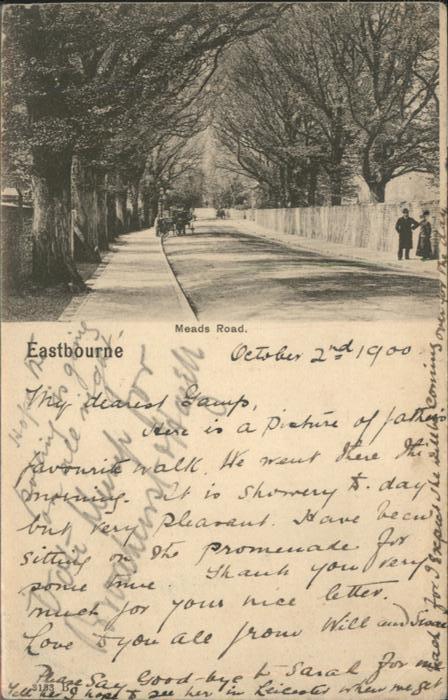 Meads Road.
Eastbourne
October 2nd 1900
My dearest Lamp,
Here is a Picture of father's
favourite walk. We went there this
morning. It is showery to-day
but very pleasant. Have been
sitting on the promenade for
some time. Thank you very
much for your nice letter.
Love to you all from Will and
Please Say Good-bye to Sarah for me
Tell her I hope to see her in Leicester when we get
back for I expect she will be coming over
3133 B
Hope
is going
on all right